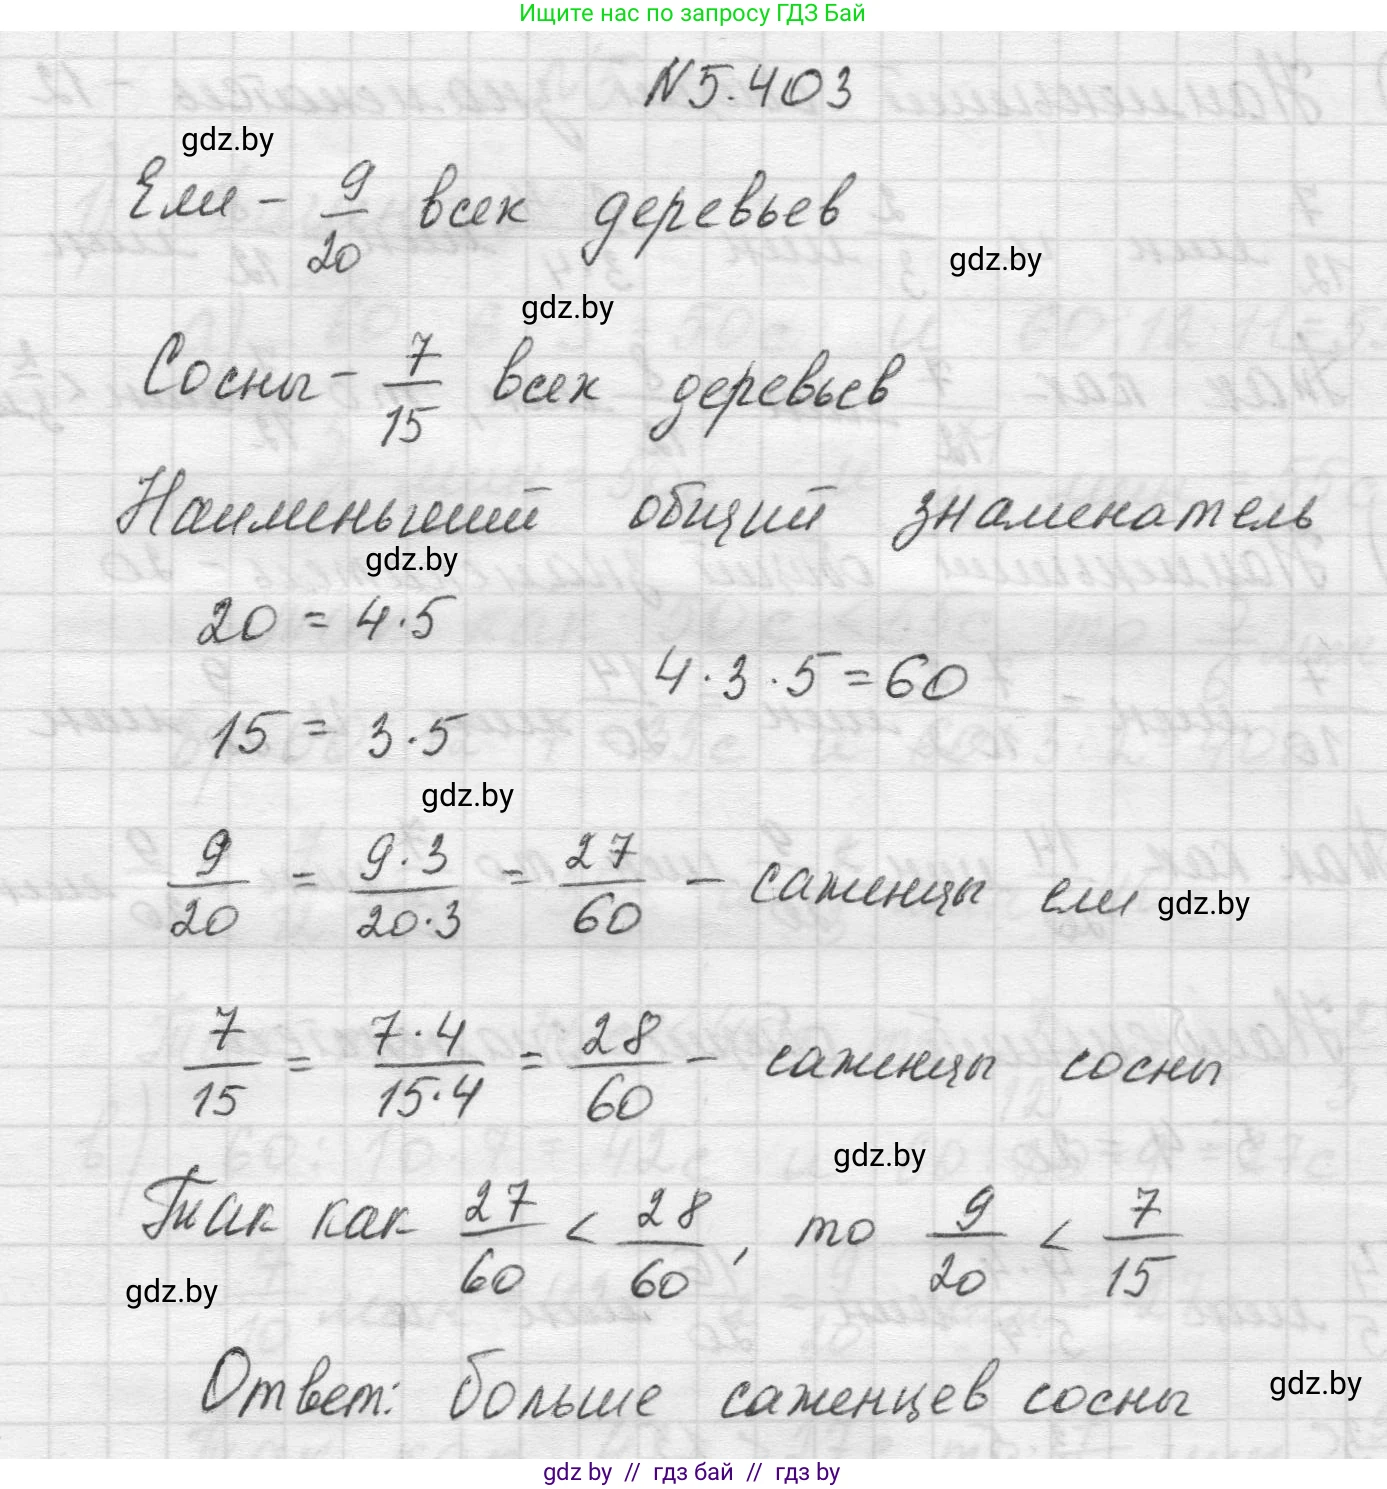 Ищите нас по запросу ГДЗ Бай
N5.403
gdz.by
Ели - 9/20 всех деревьев
gdz.by
gdz.by
Сосны - 7/15 всех деревьев
Наименьший общий знаменатель
gdz.by
20 = 4·5
4·3·5=60
15 = 3·5
gdz.by
9/20 = 9·3/20·3 = 27/60 - саженцы ели
gdz.by
7/15 = 7·4/15·4 = 28/60 - саженцы сосны
gdz.by
Так как 27/60 < 28/60, то 9/20 < 7/15
gdz.by
Ответ: больше саженцев сосны
gdz.by
gdz by // гдз бай // гдз by